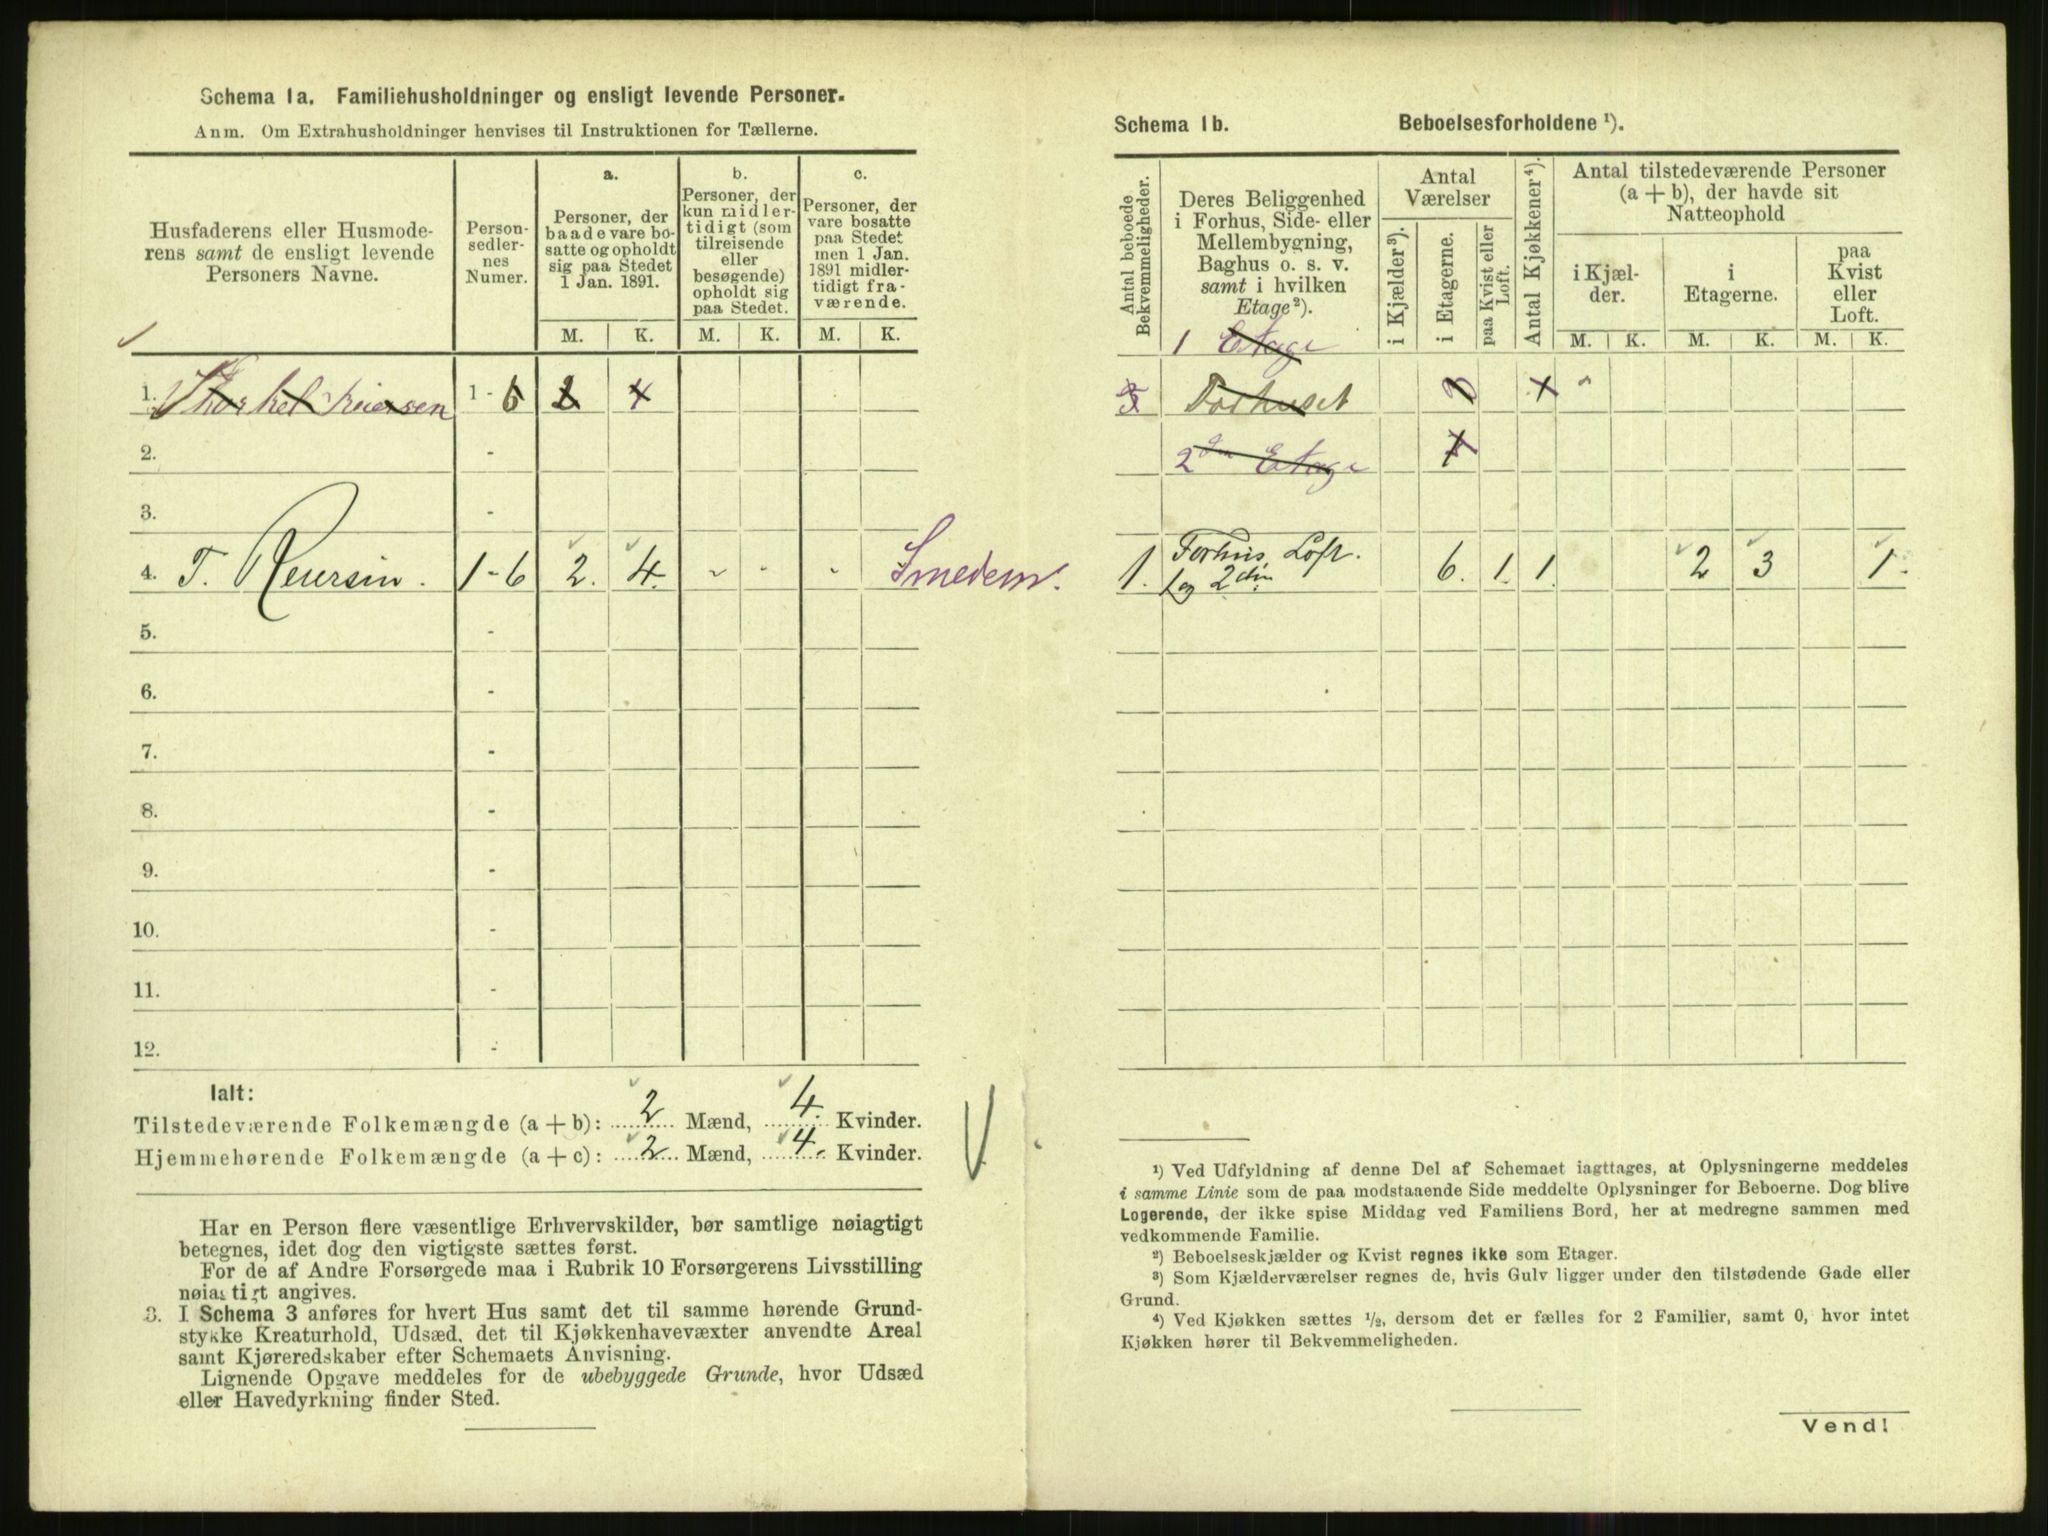 Schema 1a. Familiehusholdninger og ensligt levende Personer.
Anm. Om Extrahusholdninger henvises til Instruktionen for Tællerne.
Husfaderens eller Husmode-
rens samt de ensligt levende
Personers Navne.
Person-
sedler-
nes
Numer.
a.
Personer, der
baade vare bo-
satte og opholdt
sig paa Stedet
1 Jan. 1891.
b.
Personer, der
kun midler-
tidigt (som
tilreisende
eller
besøgende)
opholdt sig
paa Stedet.
c.
Personer, der
vare bosatte
paa Stedet
men 1 Jan.
1891 midler-
tidigt fra-
værende.
M. K. M. K. M. K.
1. Thorkel 1 - 6 2 4
2. -
3. -
4. T. Reiersen. 1-6 2. 4. Smedem.
5. -
6. -
7. -
8. -
9. -
10. -
11. -
12. -
Ialt:
Tilstedeværende Folkemængde (a + b): 2 Mænd, 4. Kvinder.
Hjemmehørende Folkemængde (a + c): 2 Mænd, 4. Kvinder.
Har en Person flere væsentlige Erhvervskilder, bør samtlige nøiagtigt
betegnes, idet dog den vigtigste sættes først.
For de af Andre Forsørgede maa i Rubrik 10 Forsørgerens Livsstilling
nøiagtigt angives.
3. I Schema 3 anføres for hvert Hus samt det til samme hørende Grund-
stykke Kreaturhold, Udsæd, det til Kjøkkenhavevæxter anvendte Areal
samt Kjøreredskaber efter Schemaets Anvisning.
Lignende Opgave meddeles for de ubebyggede Grunde, hvor Udsæd
eller Havedyrkning finder Sted.
Schema 1b. Beboelsesforholdene ¹).
Antal beboede
Bekvemmeligheder.
Deres Beliggenhed
i Forhus, Side- eller
Mellembygning,
Baghus o. s. v.
samt i hvilken
Etage²).
Antal
Værelser
i Kjælder³).
i Etagerne.
paa Kvist eller
Loft.
Antal Kjøkkener⁴).
Antal tilstedeværende Personer
(a + b), der havde sit
Natteophold
i Kjæl-
der.
i
Etagerne.
paa
Kvist
eller
Loft.
M. K. M. K. M. K.
1 Etage
Forhuset
2den Etage
1. Forhus, Loft. 6. 1. 1. 2 3 1.
1 og 2den
¹) Ved Udfyldning af denne Del af Schemaet iagttages, at Oplysningerne meddeles
i samme Linie som de paa modstaaende Side meddelte Oplysninger for Beboerne. Dog blive
Logerende, der ikke spise Middag ved Familiens Bord, her at medregne sammen med
vedkommende Familie.
²) Beboelseskjælder og Kvist regnes ikke som Etager.
³) Som Kjælderværelser regnes de, hvis Gulv ligger under den tilstødende Gade eller
Grund.
⁴) Ved Kjøkken sættes ½, dersom det er fælles for 2 Familier, samt 0, hvor intet
Kjøkken hører til Bekvemmeligheden.
Vend!